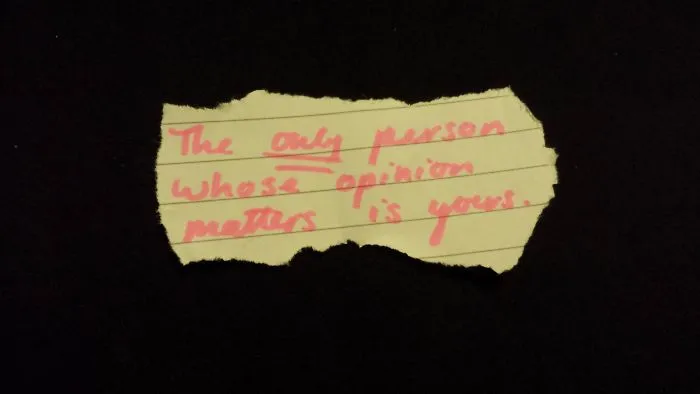 The only person
whose opinion
matters is yours.